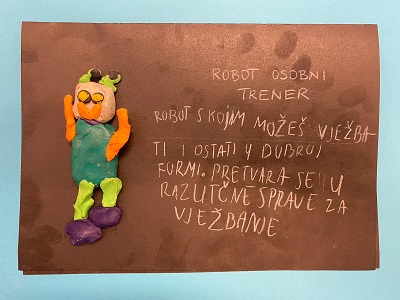 ROBOT OSOBNI
TRENER
ROBOT S KOJIM MOŽEŠ VJEŽBA-
TI I OSTATI U DOBROJ
FORMI. PRETVARA SE U
RAZLIČNE SPRAVE ZA
VJEŽBANJE